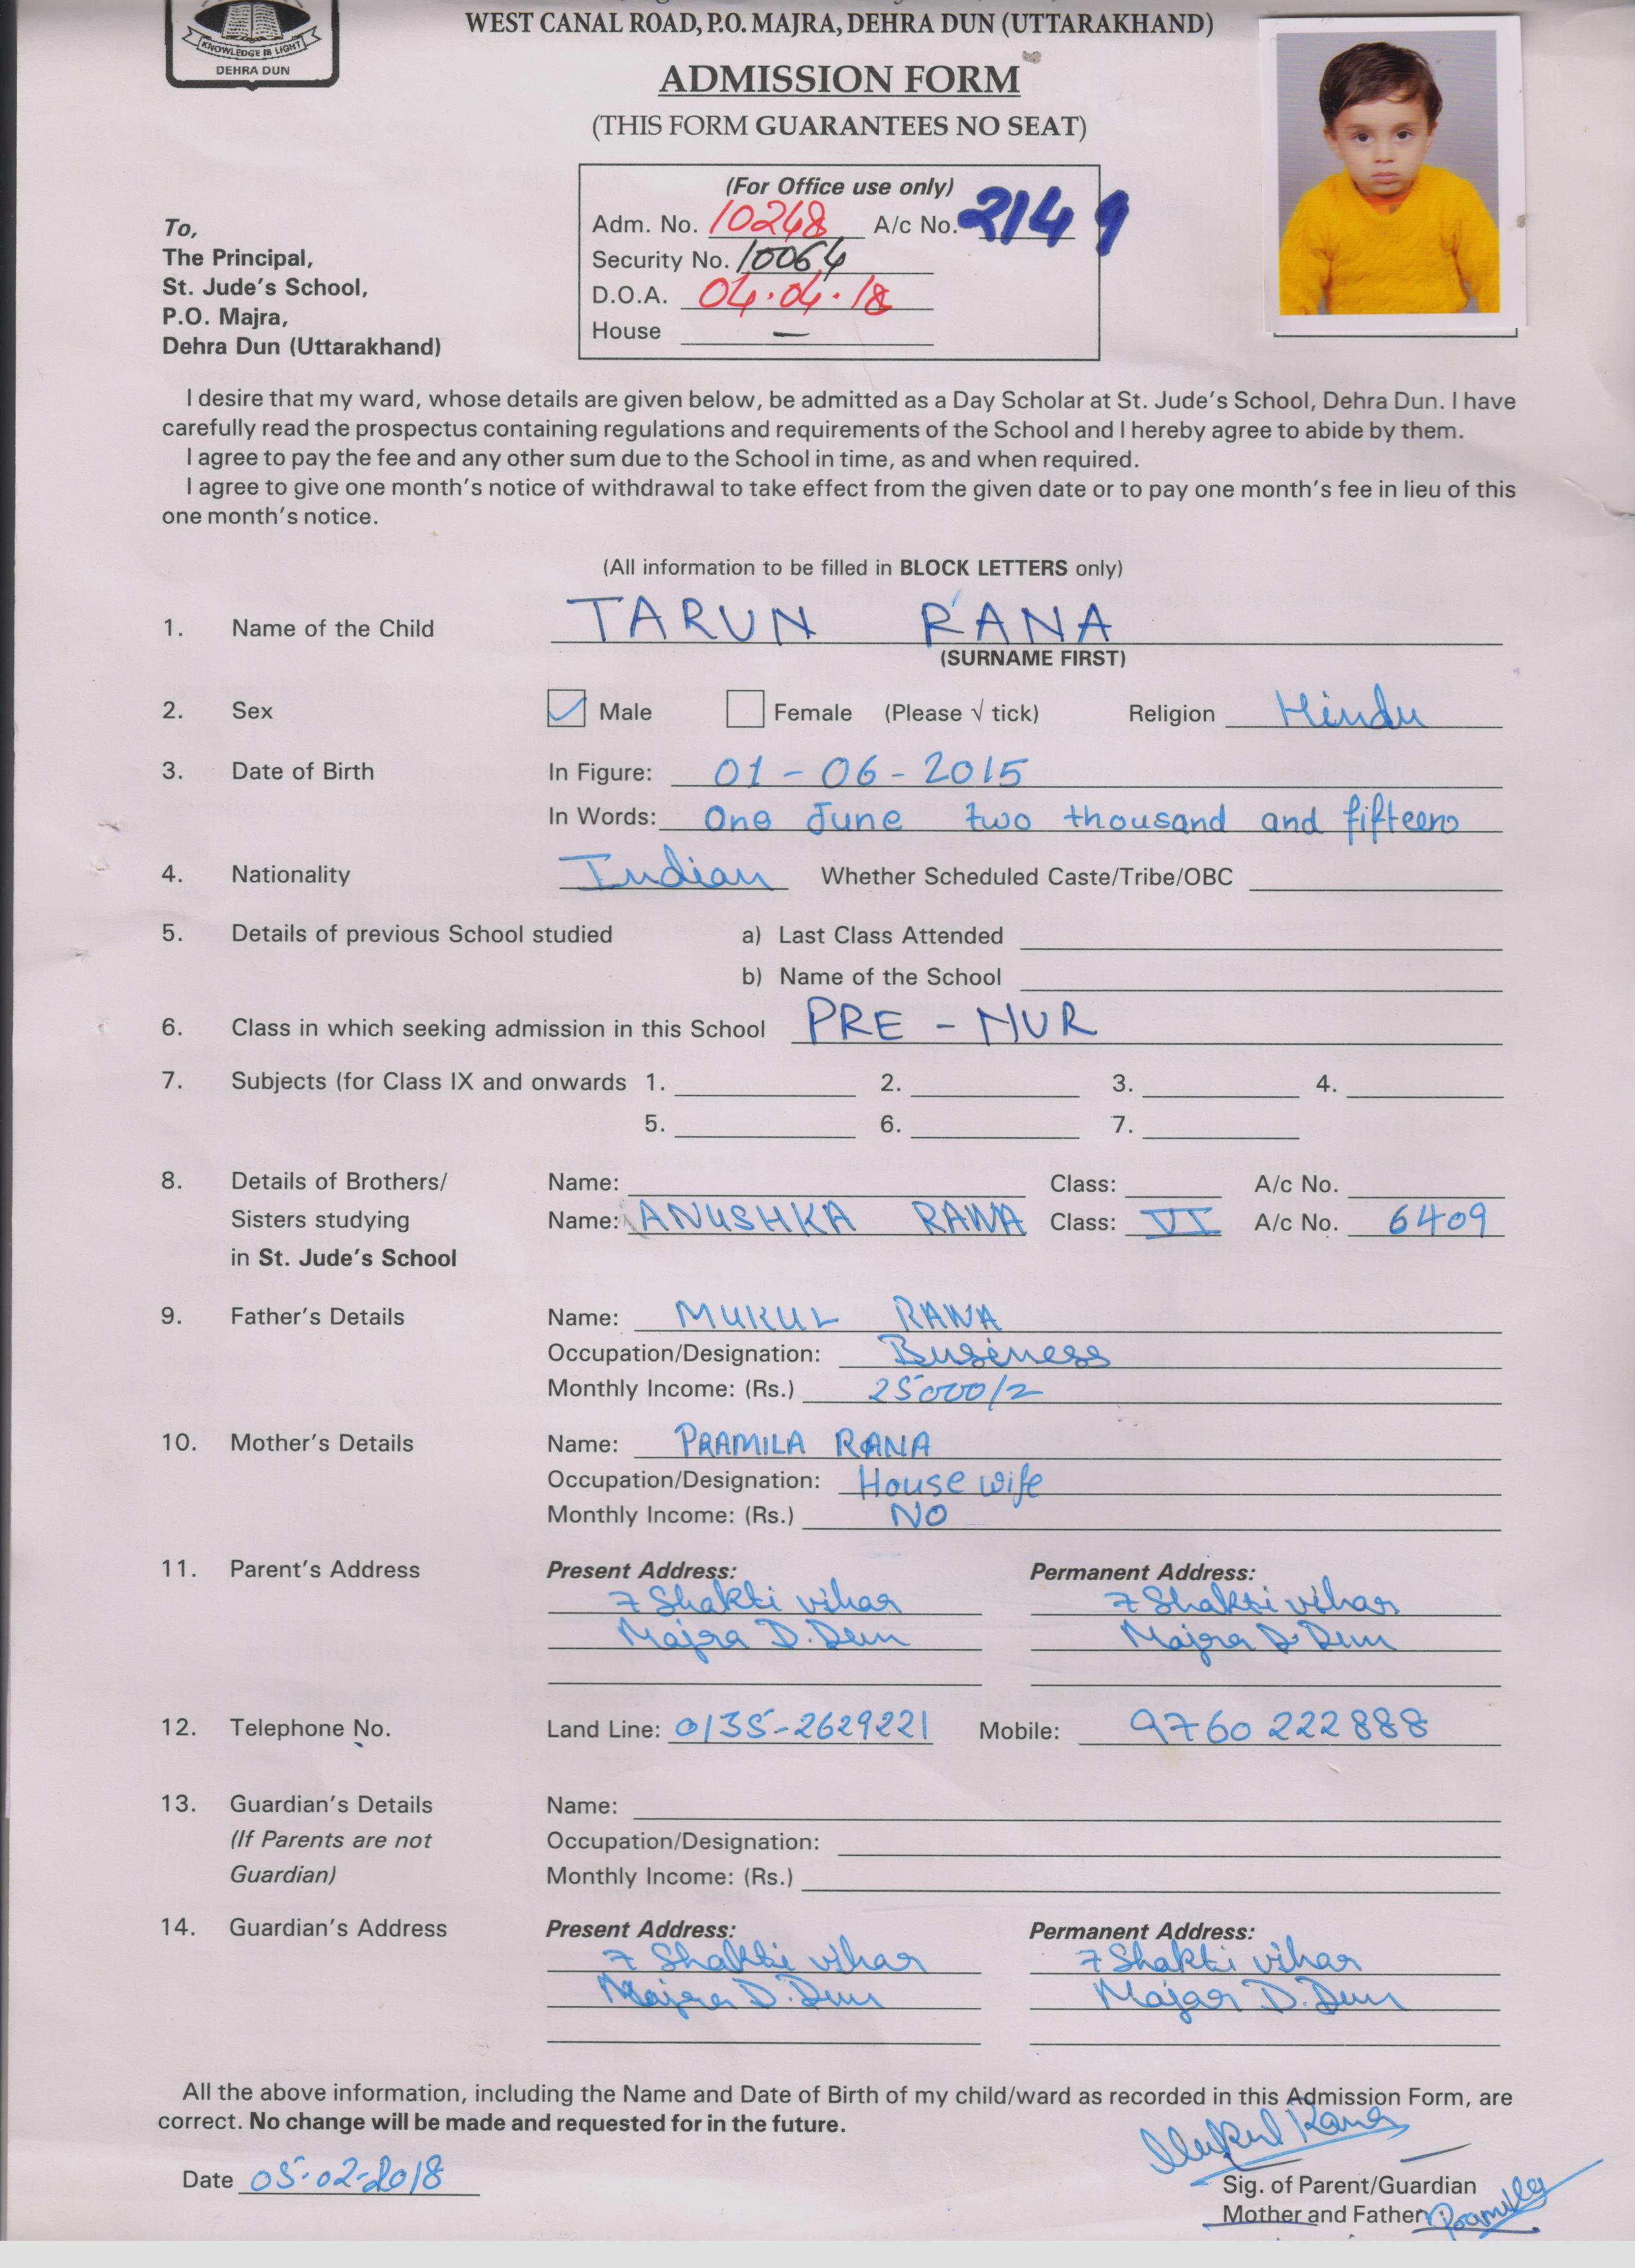 KNOWLEDGE IS LIGHT
DEHRA DUN
WEST CANAL ROAD, P.O. MAJRA, DEHRA DUN (UTTARAKHAND)
ADMISSION FORM
(THIS FORM GUARANTEES NO SEAT)
(For Office use only)
Adm. No. 10248 A/c No. 2149
Security No. 10064
D.O.A. 04.04.18
House —
To,
The Principal,
St. Jude's School,
P.O. Majra,
Dehra Dun (Uttarakhand)
I desire that my ward, whose details are given below, be admitted as a Day Scholar at St. Jude's School, Dehra Dun. I have
carefully read the prospectus containing regulations and requirements of the School and I hereby agree to abide by them.
I agree to pay the fee and any other sum due to the School in time, as and when required.
I agree to give one month's notice of withdrawal to take effect from the given date or to pay one month's fee in lieu of this
one month's notice.
(All information to be filled in BLOCK LETTERS only)
1. Name of the Child TARUN RANA
(SURNAME FIRST)
2. Sex ✓ Male Female (Please √ tick) Religion Hindu
3. Date of Birth In Figure: 01-06-2015
In Words: One June two thousand and fifteen
4. Nationality Indian Whether Scheduled Caste/Tribe/OBC
5. Details of previous School studied a) Last Class Attended
b) Name of the School
6. Class in which seeking admission in this School PRE - NUR
7. Subjects (for Class IX and onwards 1. 2. 3. 4.
5. 6. 7.
8. Details of Brothers/ Name: Class: A/c No.
Sisters studying Name: ANUSHKA RANA Class: VI A/c No. 6409
in St. Jude's School
9. Father's Details Name: MUKUL RANA
Occupation/Designation: Business
Monthly Income: (Rs.) 25000/=
10. Mother's Details Name: PRAMILA RANA
Occupation/Designation: House wife
Monthly Income: (Rs.) NO
11. Parent's Address Present Address: Permanent Address:
7 Shakti vihar 7 Shakti vihar
Majra D.Dun Majra D.Dun
12. Telephone No. Land Line: 0135-2629221 Mobile: 9760222888
13. Guardian's Details Name:
(If Parents are not Occupation/Designation:
Guardian) Monthly Income: (Rs.)
14. Guardian's Address Present Address: Permanent Address:
7 Shakti vihar 7 Shakti vihar
Majra D.Dun Majar D.Dun
All the above information, including the Name and Date of Birth of my child/ward as recorded in this Admission Form, are
correct. No change will be made and requested for in the future.
Mukul Rana
Date 05-02-2018
Sig. of Parent/Guardian
Mother and Father Pramila